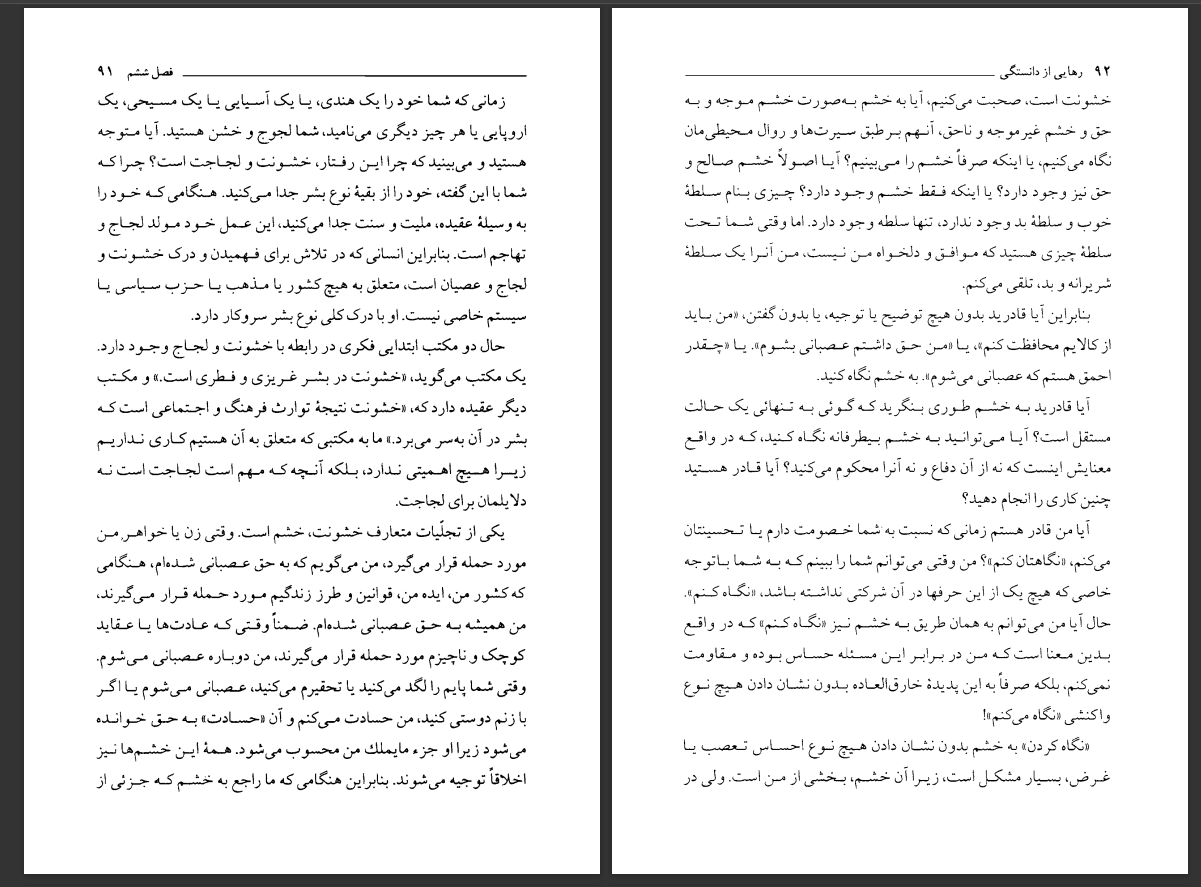 فصل ششم ۹۱
زمانی که شما خود را یک هندی، یا یک آسیایی یا یک مسیحی، یک
اروپایی یا هر چیز دیگری می‌نامید، شما لجوج و خشن هستید. آیا متوجه
هستید و می‌بینید که چرا این رفتار، خشونت و لجاجت است؟ چرا که
شما با این گفته، خود را از بقیهٔ نوع بشر جدا می‌کنید. هنگامی که خود را
به وسیلهٔ عقیده، ملیت و سنت جدا می‌کنید، این عمل خود مولد لجاج و
تهاجم است. بنابراین انسانی که در تلاش برای فهمیدن و درک خشونت و
لجاج و عصیان است، متعلق به هیچ کشور یا مذهب یا حزب سیاسی یا
سیستم خاصی نیست. او با درک کلی نوع بشر سروکار دارد.
حال دو مکتب ابتدایی فکری در رابطه با خشونت و لجاج وجود دارد.
یک مکتب می‌گوید، «خشونت در بشر غریزی و فطری است.» و مکتب
دیگر عقیده دارد که، «خشونت نتیجهٔ توارث فرهنگ و اجتماعی است که
بشر در آن به‌سر می‌برد.» ما به مکتبی که متعلق به آن هستیم کاری نداریم
زیرا هیچ اهمیتی ندارد، بلکه آنچه که مهم است لجاجت است نه
دلایلمان برای لجاجت.
یکی از تجلّیات متعارف خشونت، خشم است. وقتی زن یا خواهر من
مورد حمله قرار می‌گیرد، من می‌گویم که به حق عصبانی شده‌ام، هنگامی
که کشور من، ایده من، قوانین و طرز زندگیم مورد حمله قرار می‌گیرند،
من همیشه به حق عصبانی شده‌ام. ضمناً وقتی که عادت‌ها یا عقاید
کوچک و ناچیزم مورد حمله قرار می‌گیرند، من دوباره عصبانی می‌شوم.
وقتی شما پایم را لگد می‌کنید یا تحقیرم می‌کنید، عصبانی می‌شوم یا اگر
با زنم دوستی کنید، من حسادت می‌کنم و آن «حسادت» به حق خوانده
می‌شود زیرا او جزء مایملك من محسوب می‌شود. همهٔ این خشم‌ها نیز
اخلاقاً توجیه می‌شوند. بنابراین هنگامی که ما راجع به خشم که جزئی از
۹۲ رهایی از دانستگی
خشونت است، صحبت می‌کنیم، آیا به خشم به‌صورت خشم موجه و به
حق و خشم غیرموجه و ناحق، آنهم بر طبق سیرت‌ها و روال محیطی‌مان
نگاه می‌کنیم، یا اینکه صرفاً خشم را می‌بینیم؟ آیا اصولاً خشم صالح و
حق نیز وجود دارد؟ یا اینکه فقط خشم وجود دارد؟ چیزی بنام سلطهٔ
خوب و سلطهٔ بد وجود ندارد، تنها سلطه وجود دارد. اما وقتی شما تحت
سلطهٔ چیزی هستید که موافق و دلخواه من نیست، من آنرا یک سلطهٔ
شریرانه و بد، تلقی می‌کنم.
بنابراین آیا قادرید بدون هیچ توضیح یا توجیه، یا بدون گفتن، «من باید
از کالایم محافظت کنم»، یا «من حق داشتم عصبانی بشوم». یا «چقدر
احمق هستم که عصبانی می‌شوم». به خشم نگاه کنید.
آیا قادرید به خشم طوری بنگرید که گوئی به تنهائی یک حالت
مستقل است؟ آیا می‌توانید به خشم بیطرفانه نگاه کنید، که در واقع
معنایش اینست که نه از آن دفاع و نه آنرا محکوم می‌کنید؟ آیا قادر هستید
چنین کاری را انجام دهید؟
آیا من قادر هستم زمانی که نسبت به شما خصومت دارم یا تحسینتان
می‌کنم، «نگاهتان کنم»؟ من وقتی می‌توانم شما را ببینم که به شما با توجه
خاصی که هیچ یک از این حرفها در آن شرکتی نداشته باشد، «نگاه کنم».
حال آیا من می‌توانم به همان طریق به خشم نیز «نگاه کنم» که در واقع
بدین معنا است که من در برابر این مسئله حساس بوده و مقاومت
نمی‌کنم، بلکه صرفاً به این پدیدهٔ خارق‌العاده بدون نشان دادن هیچ نوع
واکنشی «نگاه می‌کنم»!
«نگاه کردن» به خشم بدون نشان دادن هیچ نوع احساس تعصب یا
غرض، بسیار مشکل است، زیرا آن خشم، بخشی از من است. ولی در